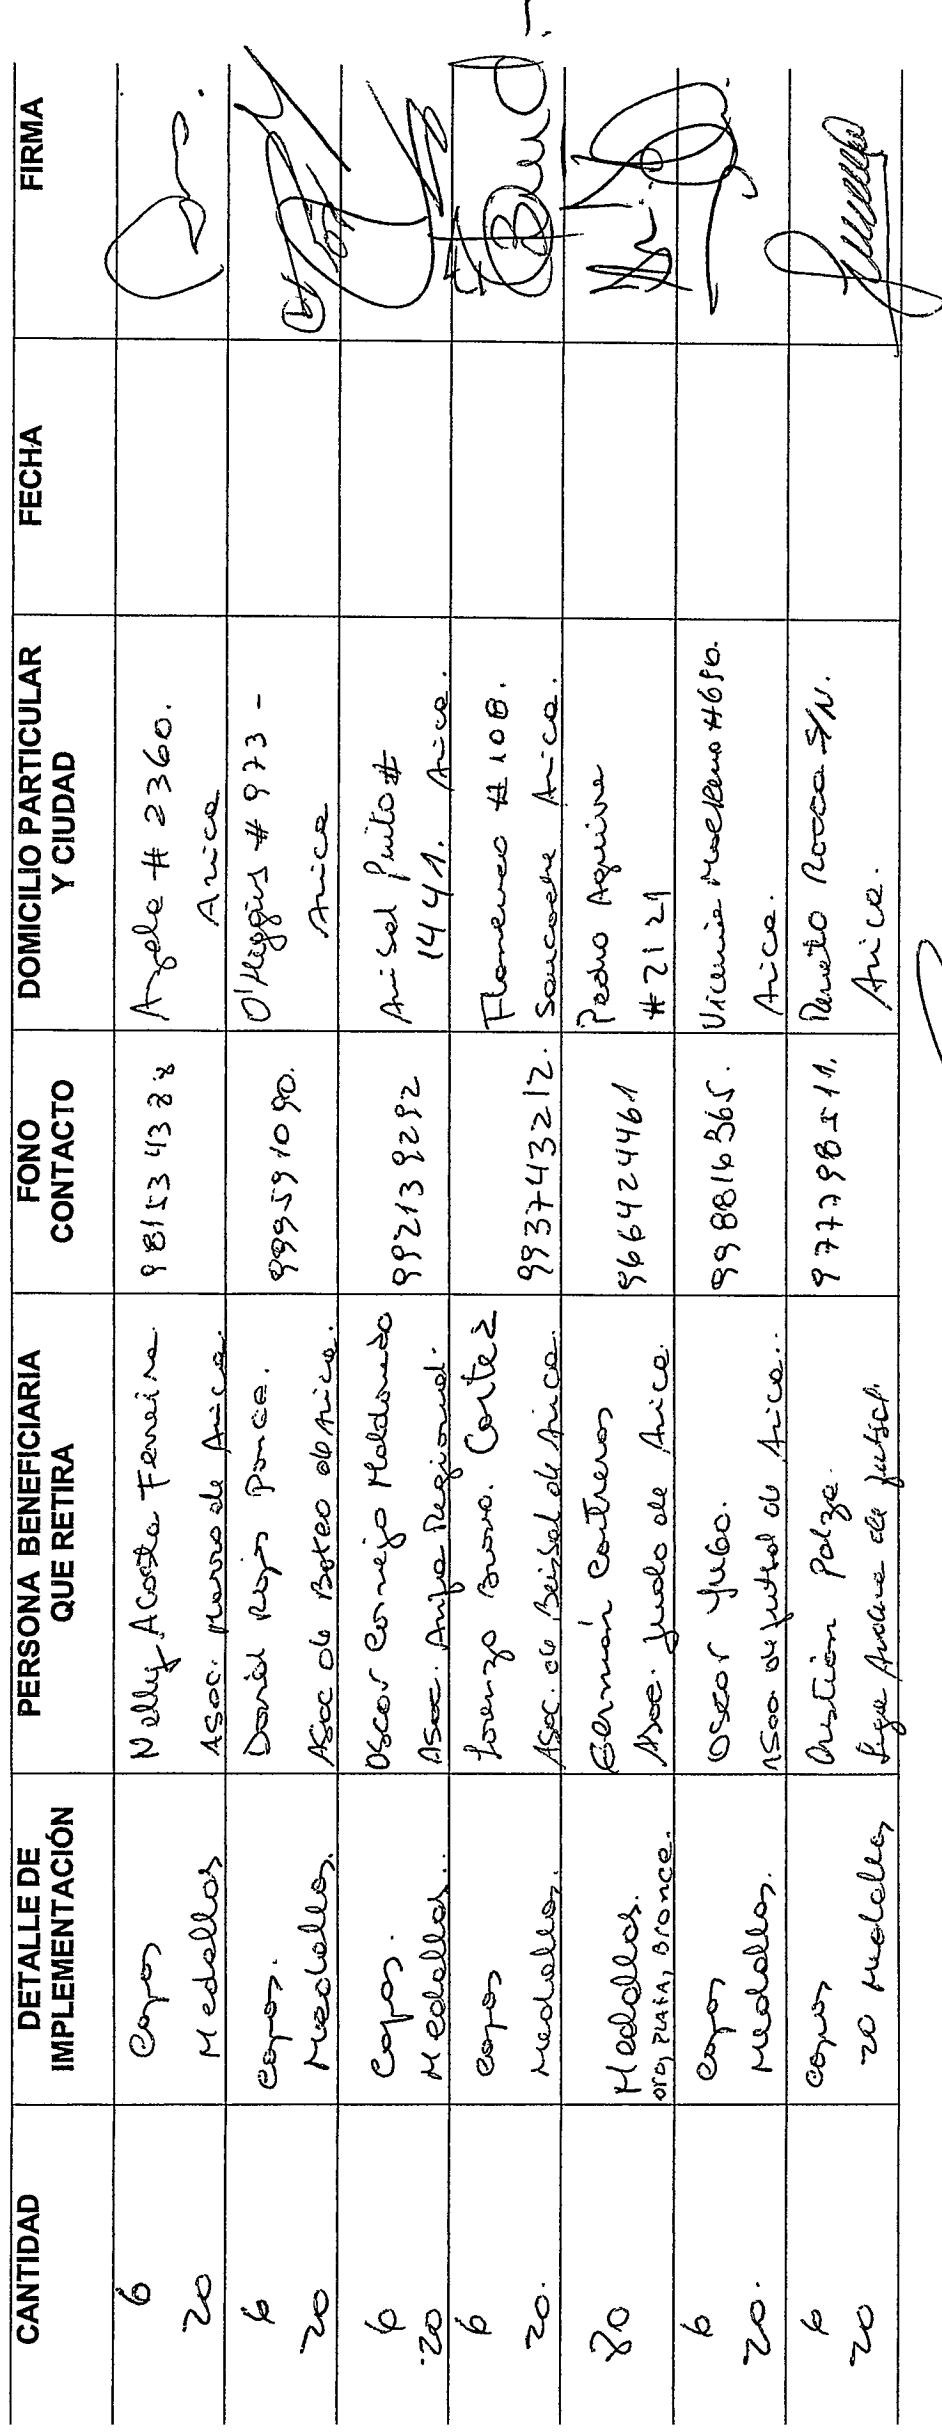 CANTIDAD
DETALLE DE
IMPLEMENTACIÓN
PERSONA BENEFICIARIA
QUE RETIRA
FONO
CONTACTO
DOMICILIO PARTICULAR
Y CIUDAD
FECHA
FIRMA
6
20
Copas
Medallas
Nelly Acosta Ferreira.
Asoc. Morro de Arica.
981534388
Azola # 2360.
Arica
6
20
Copas.
Medallas.
David Rojas Ponce.
Asoc de Boxeo de Arica.
999591090.
O'Higgins # 973 -
Arica
6
20
Copas.
Medallas..
Oscar Cornejo Maldonado
Asoc. Anfa Regional.
992139292
Anibal Pinto #
1441. Arica.
6
20.
Copas
Medallas.
Lorenzo Bravo. Cortez
Asoc. de Beisbol de Arica.
993743212.
Flamenco # 108.
Arica.
80
Medallas.
oro, PLATA, Bronce.
Germán Contreras
Asoc. Judo de Arica.
966424461
Pedro Aguirre
#2121
6
20.
Copas
Medallas.
Oscar
Asoc. de futbol de Arica..
998816365.
Vicuña Mackenna #690.
Arica.
6
20
Copas
20 Medallas
Cristian Palza.
Liga Andina de futbol.
977798511.
Renato Rocca S/N.
Arica.